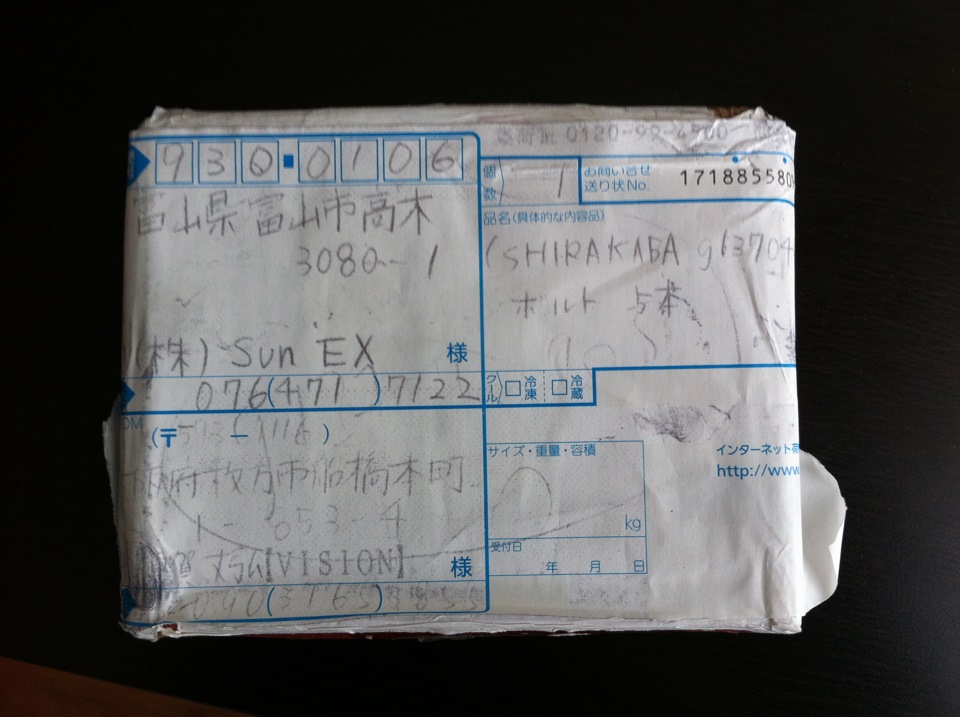 0120-99-
930-0106
富山県富山市高木
3080-1
(株) Sun EX 様
076(471)7122
個数 1
お問い合せ
送り状No. 171885580
品名(具体的な内容品)
(SHIRAKABA g13704
ボルト 5本
クール 冷凍 冷蔵
(〒 - 1116)
府枚方市船橋本町
1- 053-4
賀 [VISION] 様
サイズ・重量・容積
kg
受付日
年 月 日
インターネット
http://www